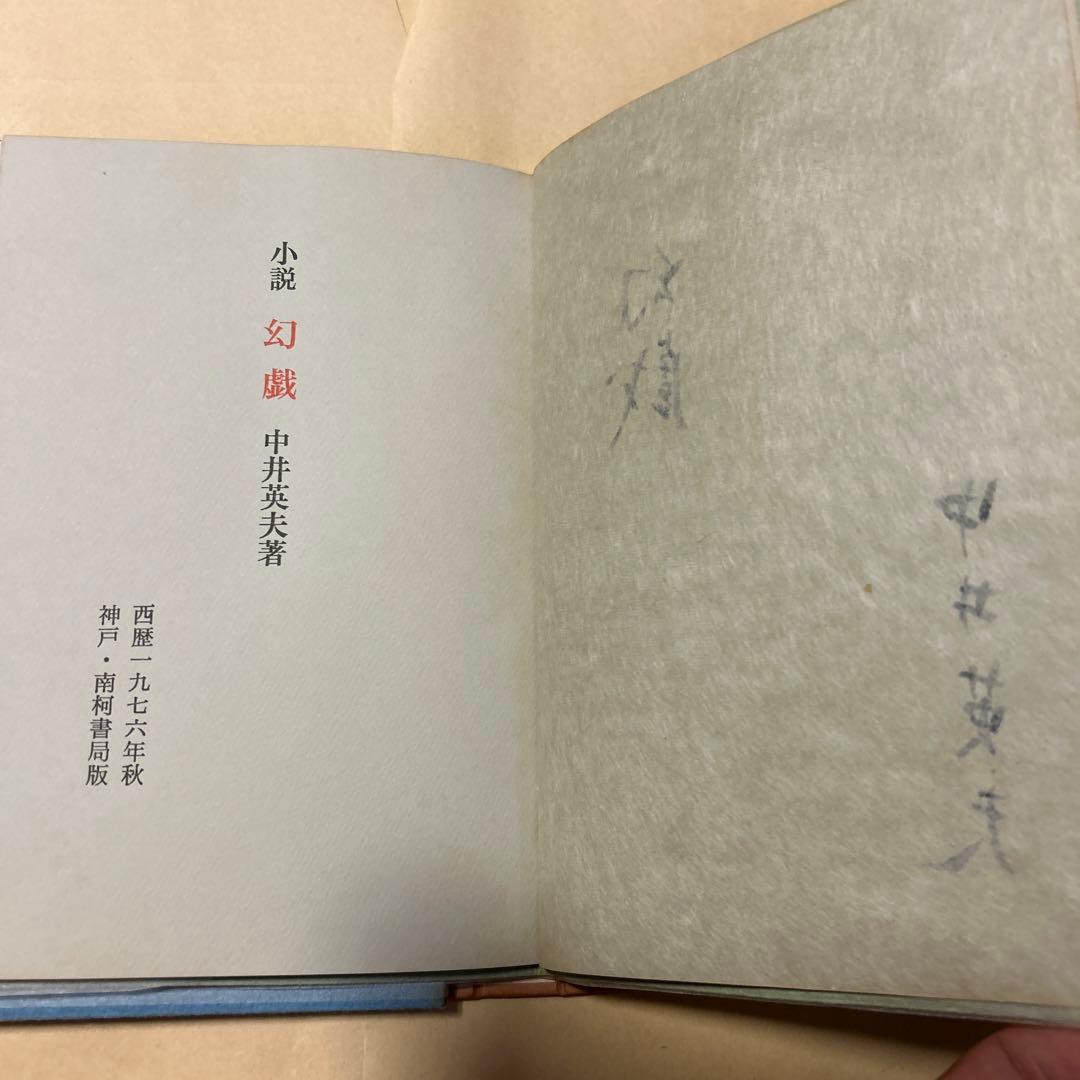 幻戯
中井英夫
小説 幻戯 中井英夫著
西歴一九七六年秋
神戸・南柯書局版